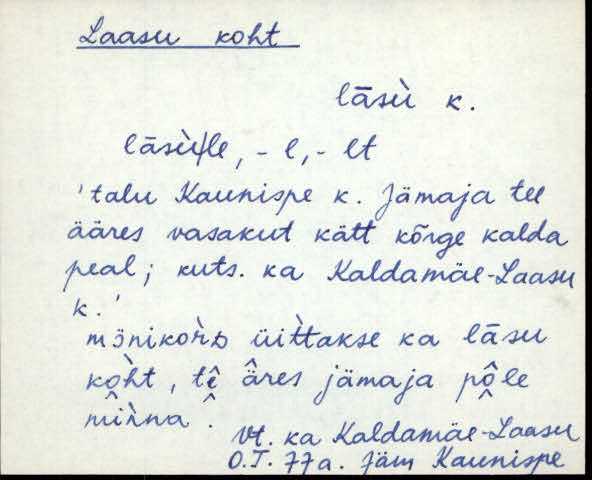 Laasu koht
lāsù k.
lāsù/le, -l, -lt
'talu Kaunispe k. Jämaja tee
ääres vasakut kätt kõrge kalda
peal; kuts. ka Kaldamäe-Laasu
k.'
mȯnikòrᴅ üìttakse ka lāsu
kòht, tê̬ ä̂res jämaja pô̬le
mìnna.
Vt. ka Kaldamäe-Laasu
O.T. 77a. Jäm Kaunispe